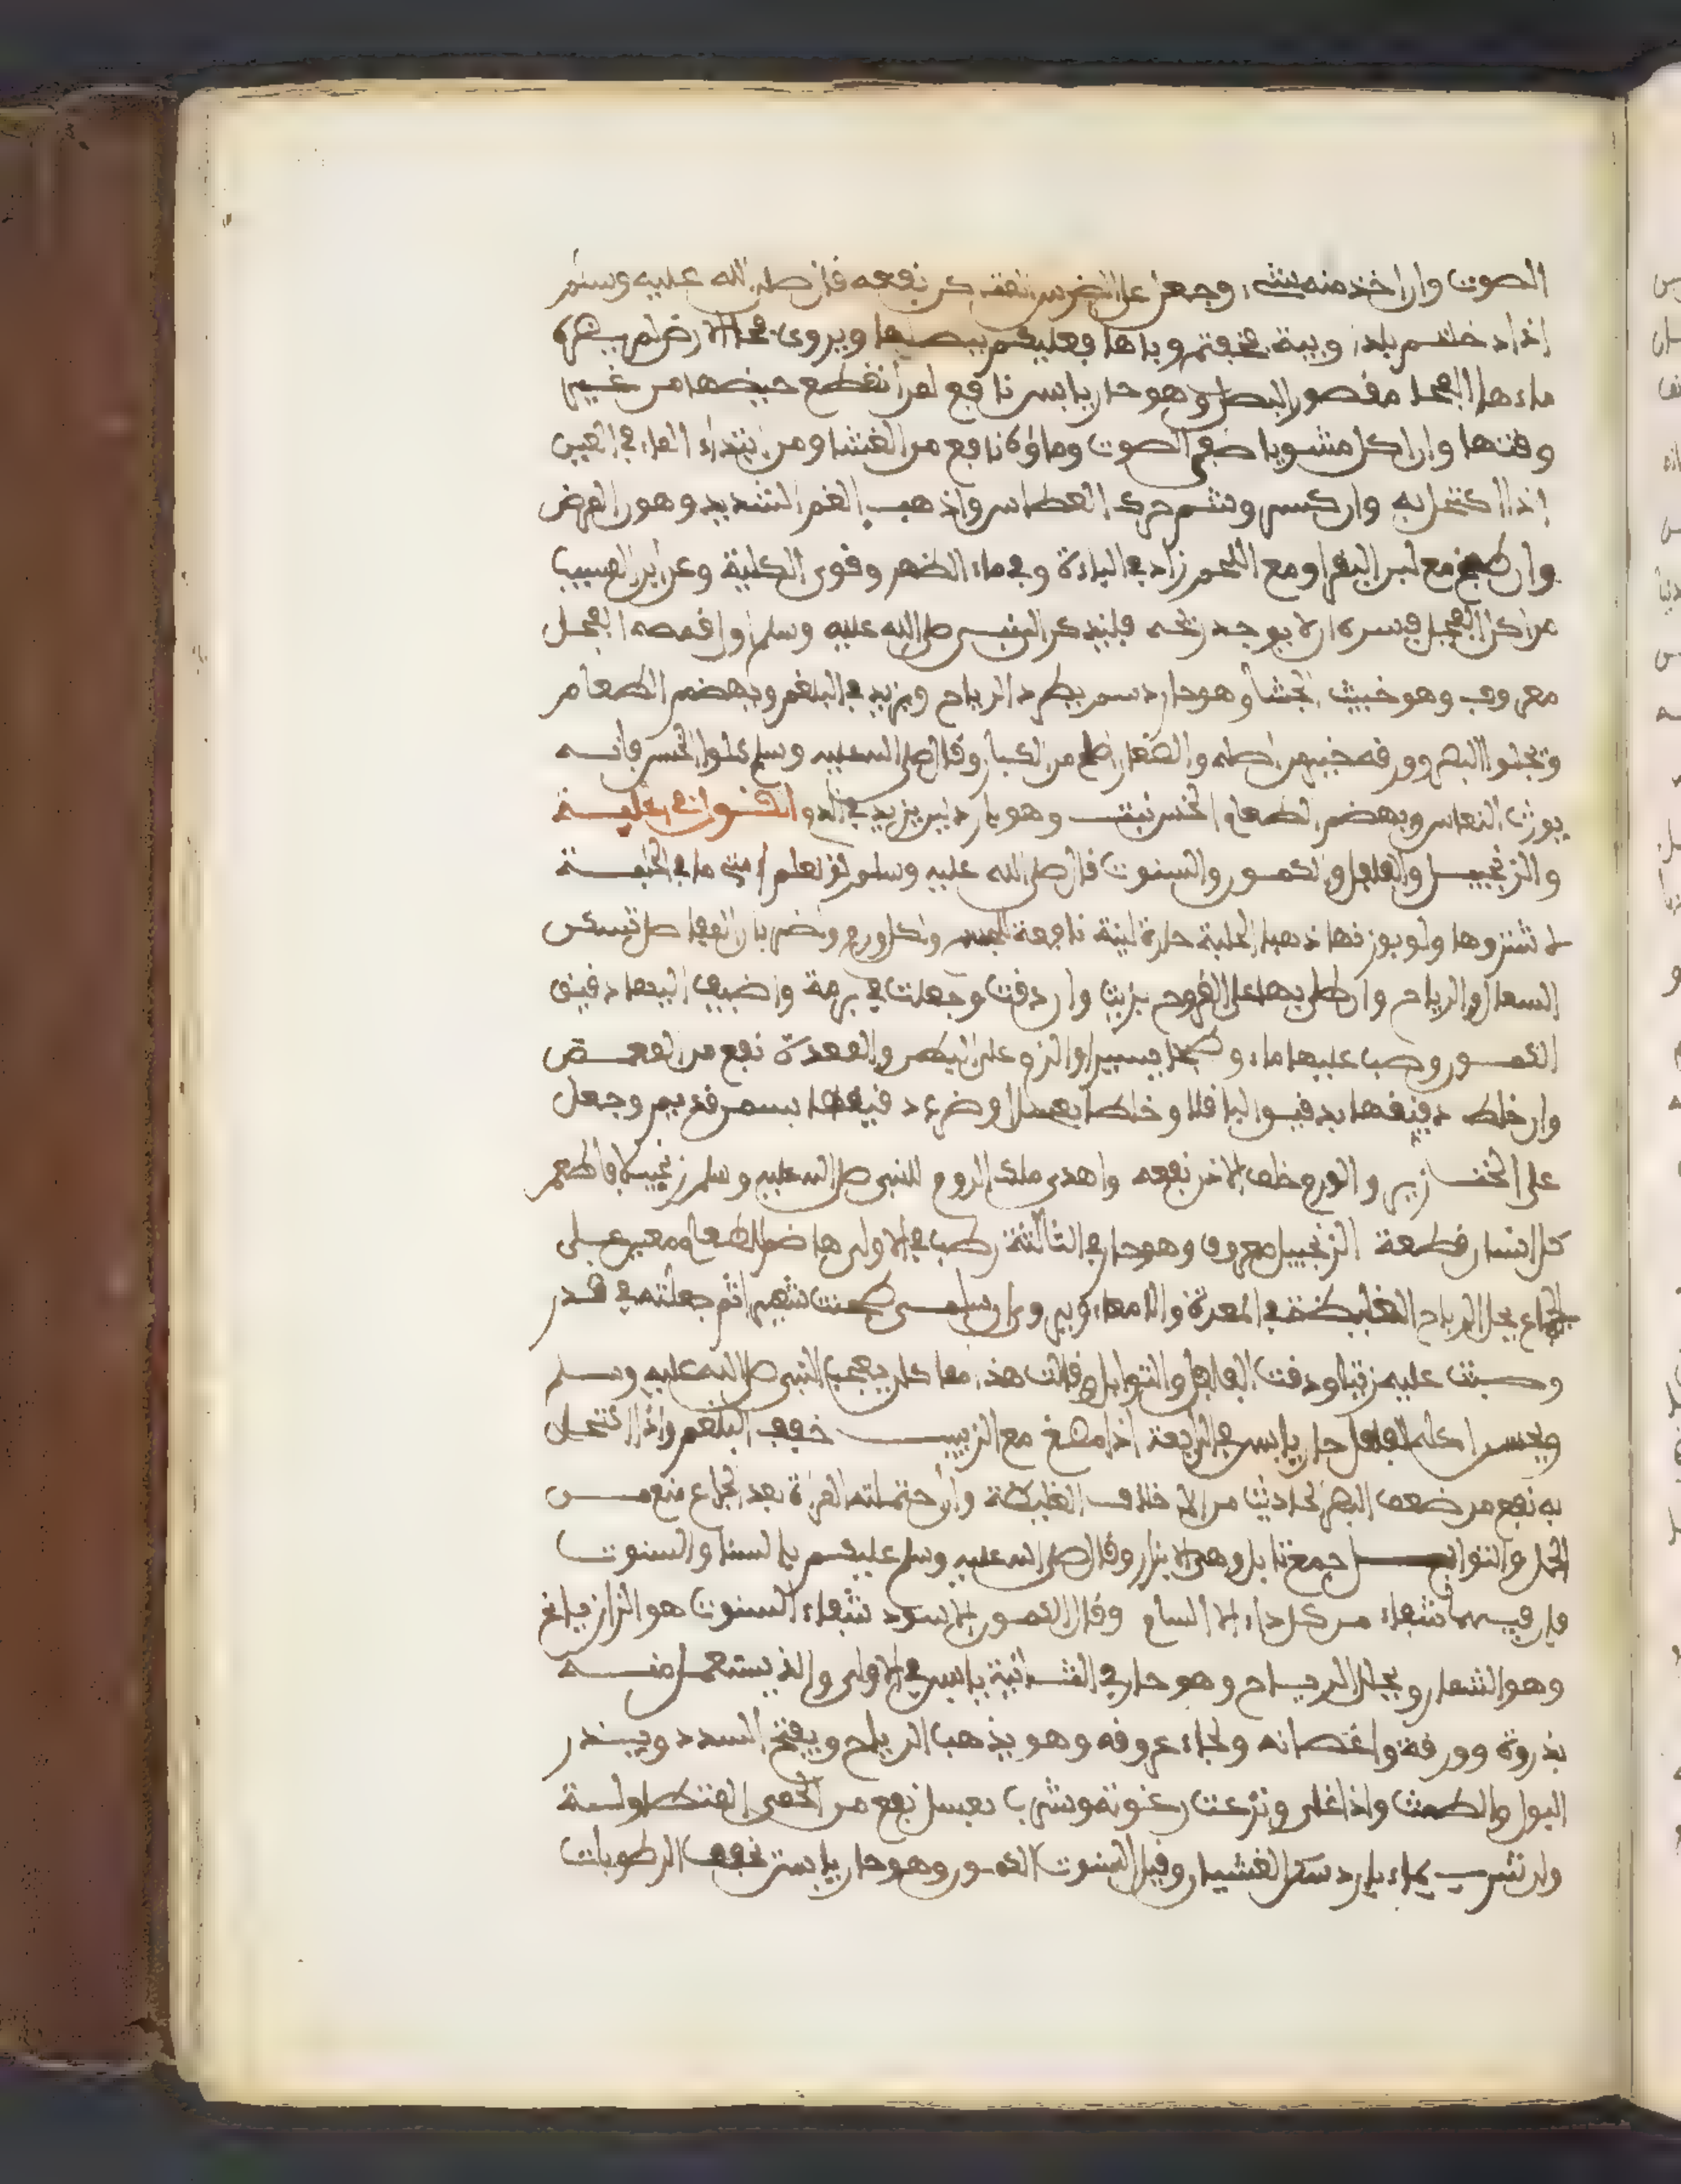 الصوت وان اخذ منه شيء وجعل على الضرس نفعه قال صلى الله عليه وسلم
اذا دخلتم بلدا وبية فخفتم وباها فعليكم ببصلها ويروى فحلا الارض لم يضره
ماءها الفحل مقصور البصل وهو حار يابس نافع لمن انقطع حيضها من غير
وقتها وان اكل مشويا صفى الصوت وماؤه نافع من الغشا ومن ابتداء الماء في العين
اذا اكتحل به وان كسر وشم حرك العطاس واذهب الغم الشديد وهور المرض
وان طبخ مع لبن البقر او مع اللحم زاد في الباءة وفي ماء الظهر وقوى الكلية وعن ابن المسيب
من اكل الفجل فسره ان لا يوجد ريحه فليذكر النبي صلى الله عليه وسلم اول قضمه الفجل
معروف وهو خبيث الجشا وهو حار دسم يطرد الرياح ويزيد في البلغم ويهضم الطعام
وتجلوا البصر وورقه خير من اصله وقال صلى الله عليه وسلم كلوا الخس فانه
يورث النعاس ويهضم الطعام الخس نبت وهو بارد لين يزيد في الدم
والزنجبيل والفلفل والكمون والسنوت قال صلى الله عليه وسلم لو تعلم امتي ما في الحلبة
لاشتروها ولو بوزنها ذهبا الحلبة حارة لينة نافعة ولكل ورم وضربان المفاصل تسكن
السعال والرياح وان طلي بها على القروح بزيت وان دقت وجعلت في برمة واضيف اليها دقيق
الكمون وصب عليها ماء وطبخا يسيرا والزق على البطن والمعدة نفع من المغص
وان خلط دقيقها بدقيق الباقلا وخلطا بعسل او ضرب دقيقها بسمن قديم وجعل
على الخنازير والورم خلف الاذن نفعه واهدى ملك الروم للنبي صلى الله عليه وسلم زنجبيلا فاطعم
كل انسان قطعة الزنجبيل معروف وهو حار في الثالثة رطب في الاولى هاضم للطعام ومعين على
الجماع يحل الرياح الغليظة في المعدة والامعاء ويروى ان سلمى طحنت شعيرا ثم جعلته في قدر
وصبت عليه زيتا ودقت الفلفل والتوابل وقالت هذا مما كان يعجب النبي صلى الله عليه وسلم
ويحسن اكله الفلفل حار يابس في الرابعة اذا مضغ مع الزبيب خفف البلغم واذا اكتحل
به نفع من ضعف البصر الحادث من الاخلاف الغليظة وان احتملته المراة بعد الجماع منع من
الحمل والتوابل جمع تابل وهي الابزار وقال صلى الله عليه وسلم عليكم بالسنا والسنوت
فان فيهما شفاء من كل داء الا السام وقال الكمون الاسود شفاء السنوت هو الرازيانج
وهو الشمار ويحلل الرياح وهو حار في الثانية يابس في الاولى والذي يستعمل منه
بذروه وورقه واغصانه ولحاء عروقه وهو يذهب الرياح ويفتح السدد ويدر
البول والطمث واذا غلي ونزعت رغوته وشرب بعسل نفع من الحمى المتطاولة
وان شرب بماء بارد سكن الغشيان وقيل السنوت الكمون وهو حار يابس يجفف الرطوبات